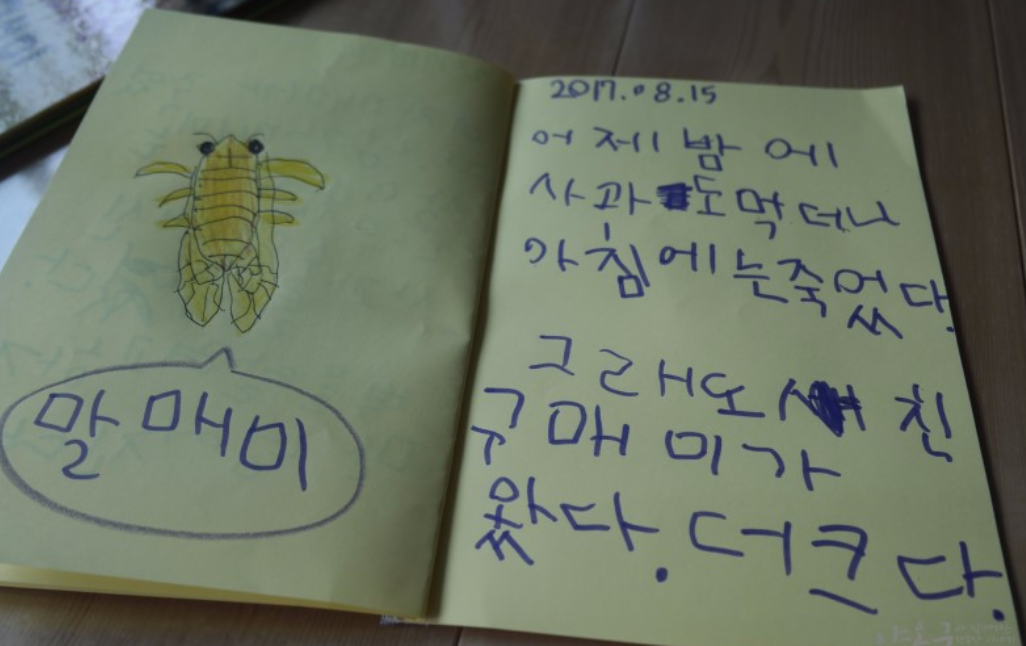 말매미
2017.08.15
어제밤에
사과도먹더니
아침에는죽었다.
그래도 새 친
구 매미가
왔다. 더크다.